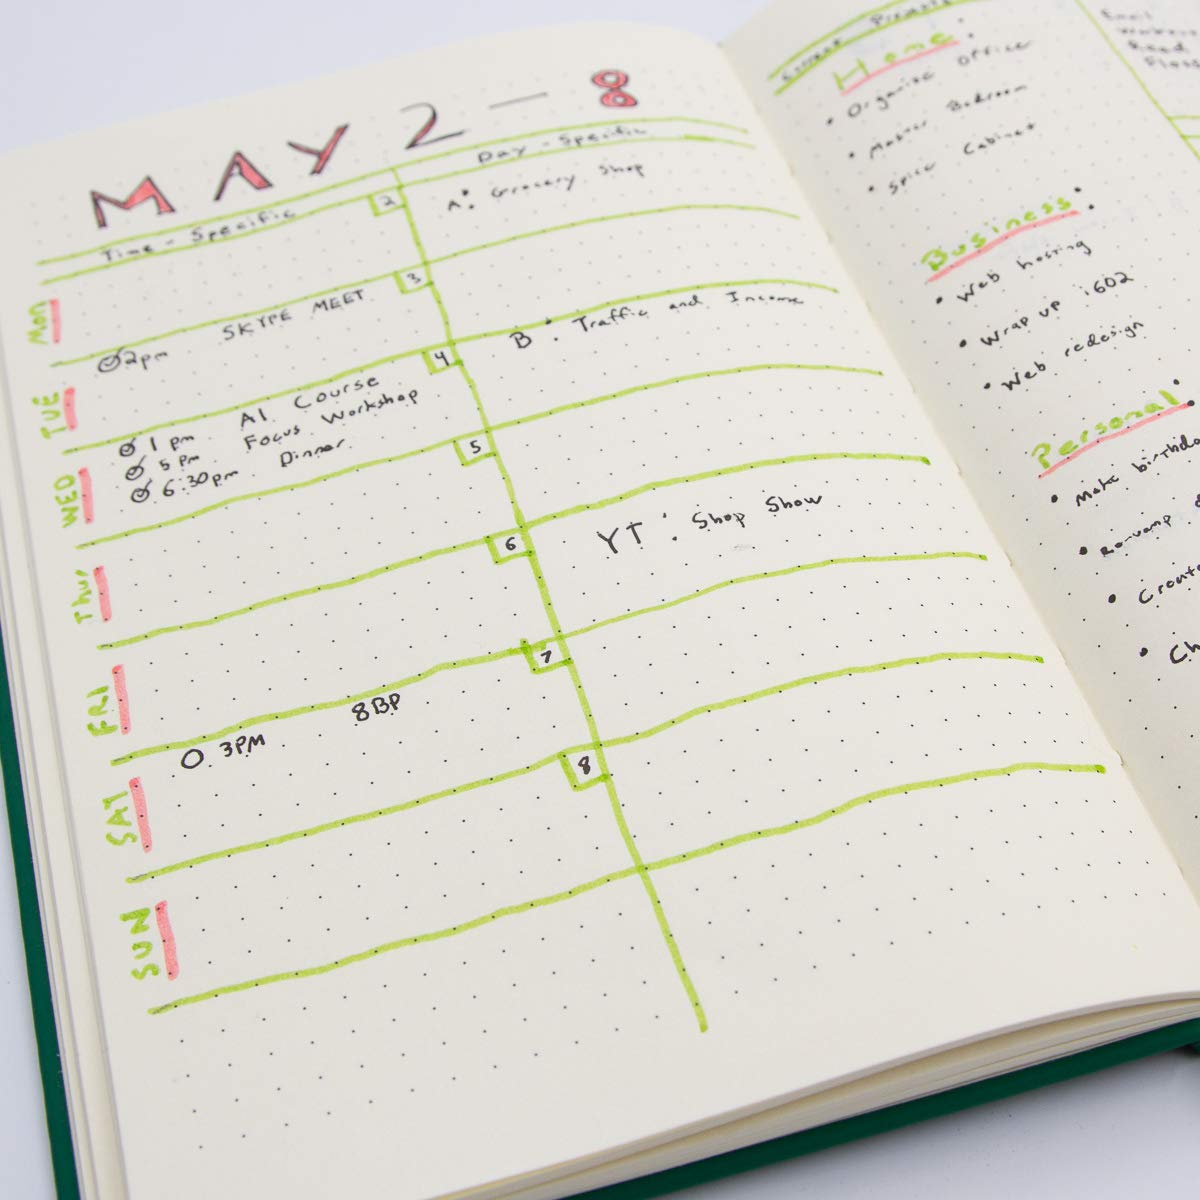 MAY 2 — 8
Time - Specific
Day - Specific
Mon
2
A: Grocery Shop
TUE
3
2pm SKYPE MEET
WED
4
1 pm AI Course
5 pm Focus Workshop
6:30pm Dinner
B: Traffic and Income
Thur
5
FRI
6
YT: Shop Show
SAT
7
3PM 8BP
SUN
8
Current Projects
Home:
• Organize Office
• Master Bedroom
• Spice Cabinet
Business:
• Web hosting
• Wrap up 1602
• Web redesign
Personal:
• Make birthda
• Re-vamp
• Create
• Ch
Email
Read
Floss